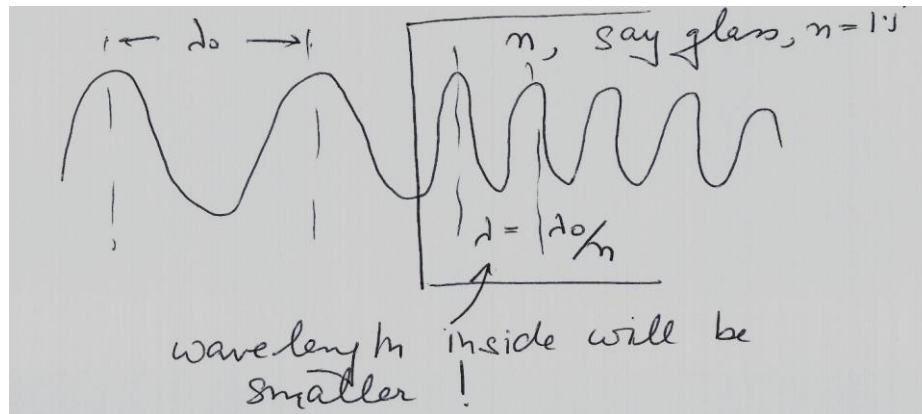 λ₀
n, say glass, n = 1.5
λ = λ₀/n
wavelength inside will be
smaller !